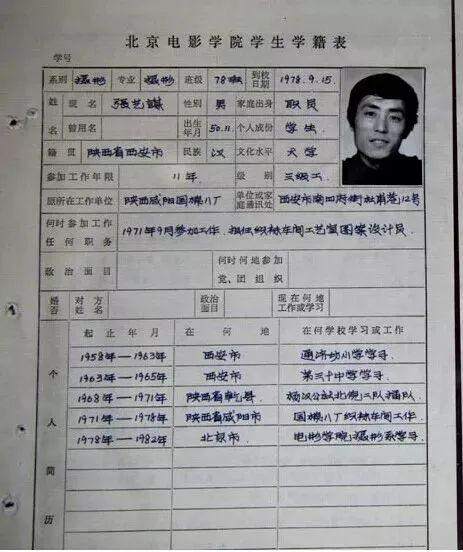 北京电影学院学生学籍表
学号
系别 摄影 专业 摄影 班级 78班 到校日期 1978.9.15.
姓名 现名 张艺谋 性别 男 家庭出身 职员
曾用名 出生年月 50.11. 个人成份 学生
籍贯 陕西省西安市 民族 汉 文化水平 大学
参加工作年限 11年 级别 三级工
原所在工作单位 陕西咸阳国棉八厂 单位或家庭通讯处 西安市南四府街杜甫巷12号
何时参加工作任何职务 1971年9月参加工作，担任织袜车间工艺室图案设计员.
政治面目 何时何地参加党、团组织
婚否 对方姓名 政治面目 现在何地工作或学习
个人简历
起止年月 在何地 在何学校学习或工作
1958年—1963年 西安市 通济坊小学学习.
1963年—1965年 西安市 第三十中学学习.
1968年—1971年 陕西省乾县. 杨汉公社北倪二队插队
1971年—1978年 陕西省咸阳市 国棉八厂织袜车间工作.
1978年—1982年 北京市 电影学院摄影系学习.